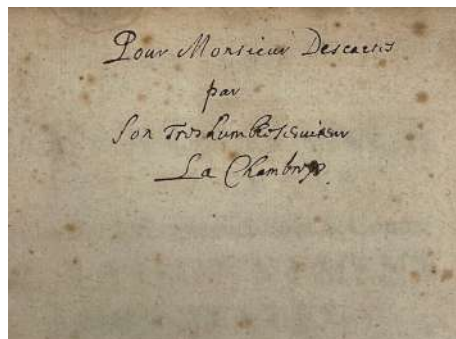 Pour Monsieur Descartes
par
son Treshumble serviteur
La Chambre